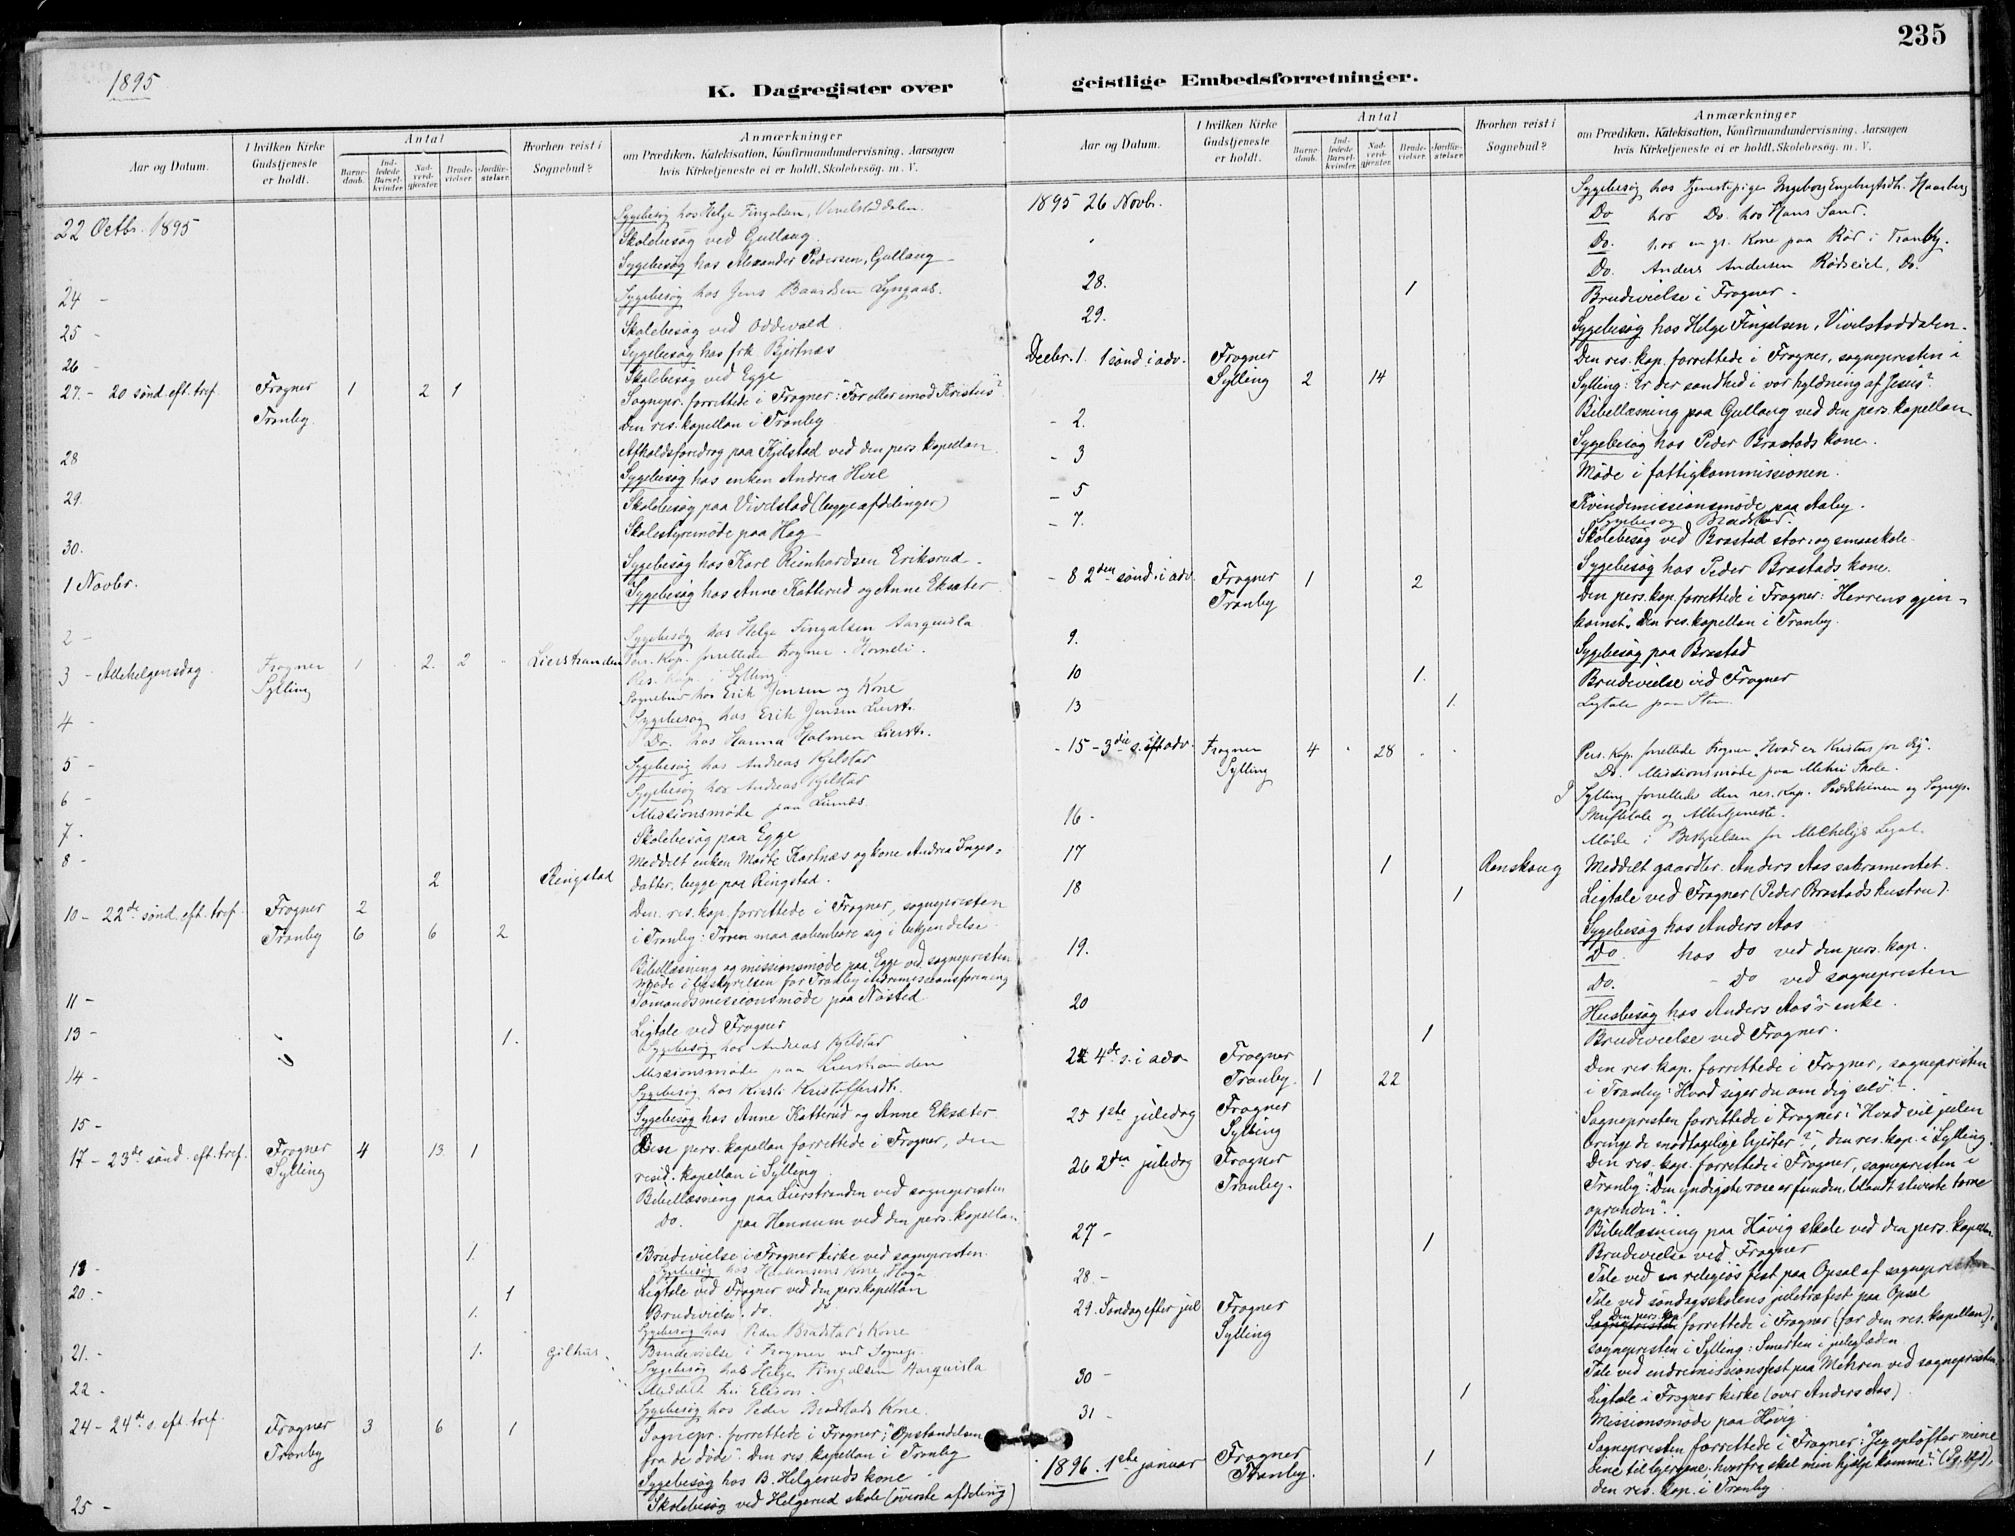 235
1895
K. Dagregister over geistlige Embedsforretninger.
Aar og Datum.
I hvilken Kirke Gudstjeneste er holdt.
Antal
Barnedaab.
Indledede Barselkvinder.
Nadverdgjester.
Brudevielser.
Jordfæstelser.
Hvorhen reist i Sognebud?
Anmærkninger
om Prædiken, Katekisation, Konfirmandundervisning. Aarsagen hvis Kirketjeneste ei er holdt. Skolebesøg. m. V.
22 Octbr. 1895 Sygebesøg hos Helge Fingalsen, Vivelstaddalen.
Skolebesøg ved Gullaug.
Sygebesøg hos Alexander Pedersen, Gullaug
24 - Sygebesøg hos Jens Baardsen Lyngaas.
25 - Skolebesøg ved Oddevald.
Sygebesøg hos frk. Bjertnæs
26 - Skolebesøg ved Egge
27 - 20 sønd. eft. tref. Frogner 1 2 1 Sognepr. forrettede i Frogner: "For eller imod Kristus"?
Tranby. Den res. kapellan i Tranby.
28 Afholdsforedrag paa Kjelstad ved den pers. kapellan.
Sygebesøg hos enken Andrea Hvil
29 Skolebesøg paa Vivelstad (begge afdelinger)
Skolestyremøde paa Hag
30. Sygebesøg hos Karl Reinhardsen Eriksrud
1 Novbr. Sygebesøg hos Anne Katterud og Anne Eksæter
2 - Sygebesøg hos Helge Fingalsen
3 - Allehelgensdag. Frogner 1 2. 2 Lierstranden Pers. Kap. forrettede Frogner.
Sylling Res. Kap. i Sylling.
Sognebud hos Erik Jensen og Kone
4 - Sygebesøg hos Erik Jensen Lierstr.
Do. hos Hanna Holmen Lierstr.
5 - Sygebesøg hos Andreas Kjelstad
6 - Sygebesøg hos Andreas Kjelstad
Missionsmøde paa
7. Skolebesøg paa Egge
8 - 2 Ringstad Meddelt enken Marte Kortnæs og kone Andrea Inges-
datter, begge paa Ringstad.
10 - 22de sønd. eft. tref. Frogner 2 Den res. kap. forrettede i Frogner, sognepresten
Tranby 6 6 2 i Tranby: Troen maa aabenbare sig i bekjendelse.
Bibellæsning og missionsmøde paa Egge ved sognepresten
Møde i bestyrelsen for Tranby indremissionsforening
11 - Sømandsmissionsmøde paa Nøsted
13 - 1. Ligtale ved Frogner
Sygebesøg hos Andreas Kjelstad
14 - Missionsmøde paa Lierstranden
Sygebesøg hos Kirsti Kristoffersdt.
15 - Sygebesøg hos Anne Katterud og Anne Eksæter
17 - 23de sønd. eft. tref. Frogner 4 13 1 Den pers. kapellan forrettede i Frogner, den
Sylling resid. kapellan i Sylling.
Bibellæsning paa Lierstranden ved sognepresten
Do. paa Hennum ved den pers. kapellan.
1. Brudevielse i Frogner kirke ved sognepresten.
18 - Sygebesøg hos Haakonsens Kone Haga
20. - 1 Ligtale ved Frogner ved den pers. kapellan
1. Brudevielse do. do
Sygebesøg hos Peder Bradstad's Kone
21. - 1. Gilhus. Brudevielse i Frogner ved Sognepr.
Sygebesøg hos Helge Fingalsen
22. Meddelt
Sygebesøg hos Peder Bradstads Kone.
24 - 24de s. eft. tref. Frogner 3 6 1 Sognepr. forrettede i Frogner: "Opstandelsen
Tranby fra de døde". Den res. kapellan i Tranby
Sygebesøg hos B. Helgeruds kone
25 - Skolebesøg ved Helgerud skole (øverste afdeling)
Aar og Datum.
I hvilken Kirke Gudstjeneste er holdt.
Antal
Barnedaab.
Indledede Barselkvinder.
Nadverdgjester.
Brudevielser.
Jordfæstelser.
Hvorhen reist i Sognebud?
Anmærkninger
om Prædiken, Katekisation, Konfirmandundervisning. Aarsagen hvis Kirketjeneste ei er holdt. Skolebesøg. m. V.
1895 26 Novbr. Sygebesøg hos tjenestepigen Ingeborg Engebrigtsdt. Haarberg
Do hos Do. hos Hans Sand.
Do. hos en gl. Kone paa Rød i Tranby.
Do. Anders Andersen Rødseiet, Do.
28. 1 Brudevielse i Frogner
29. Sygebesøg hos Helge Fingalsen, Vivelstaddalen.
Decbr. 1. 1 sønd. i adv. Frogner Den res. kap. forrettede i Frogner, sognepresten i
Sylling 2 14 Sylling: "Er der sandhed i vor hyldning af Jesus"?
- 2. Bibellæsning paa Gullaug ved den pers. kapellan
Sygebesøg hos Peder Brastads kone.
- 3 Møde i fattigkommissionen.
- 5 Kvindemissionsmøde paa Aaby.
Sygebesøg Bradstad.
- 7. Skolebesøg ved Brastad stor- og smaaskole.
Sygebesøg hos Peder Brastads kone.
- 8 2den sønd. i adv. Frogner 1 2 Den pers. kap. forrettede i Frogner: "Herrens gjen-
Tranby komst". Den res. kapellan i Tranby.
9. Sygebesøg paa Brastad
10 1. Brudevielse ved Frogner
13 1. Ligtale paa Sten
- 15 - 3die s. i adv. Frogner 4 28 Pers. Kap. forrettede Frogner "Hvad er Kristus for dig".
Sylling Do. Missionsmøde paa Mehri Skole.
I Sylling forrettede den res. Kap. Prædikenen og Sognepr.
Skriftetale og Altertjeneste.
16 - Møde i Bestyrelsen for Legat.
17 1 Aanskaug Meddelt gaardbr. Anders Aas sakramentet.
18 1 Ligtale ved Frogner (Peder Brastads hustru).
Sygebesøg hos Anders Aas
19. Do. hos Do ved den pers. kap.
Do. - Do ved sognepresten
20 Husbesøg hos Anders Aas's enke.
1 Brudevielse ved Frogner.
22 4de s. i adv. Frogner Den res. kap. forrettede i Frogner, sognepresten
Tranby. 1 22 i Tranby: Hvad siger du om dig selv"?
25 1ste juledag Frogner Sognepresten forrettede i Frogner: "Hvad vil julen
Sylling bringe de modtagelige hjerter"? den res. kap. i Sylling.
26 2den juledag Frogner Den res. kap. forrettede i Frogner, sognepresten i
Tranby. Tranby: "Den yndigste rose er funden, blandt stiveste torne
oprunden".
27 - Bibellæsning paa Høvig skole ved den pers. kapellan
1 Brudevielse ved Frogner
28. - Tale ved en religiøs fest paa Opsal af sognepresten
Tale ved søndagsskolens juletræfest paa Opsal
29. Søndag efter jul Frogner Den pers. kap. forrettede i Frogner (for den res. kapellan),
Sylling sognepresten i Sylling: Smerten i juleglæden
30 - Tale ved indremissionsfest paa Mehren ved sognepresten.
1 Ligtale i Frogner kirke (over Anders Aas).
31 - Missionsmøde paa Høvig.
1896. 1ste januar Frogner 1 Sognepresten forrettede i Frogner: "Jeg opløfter mine
Tranby. øine til bjergene, hvorfra skal min hjelp komme"?
den res. kap. i Tranby.